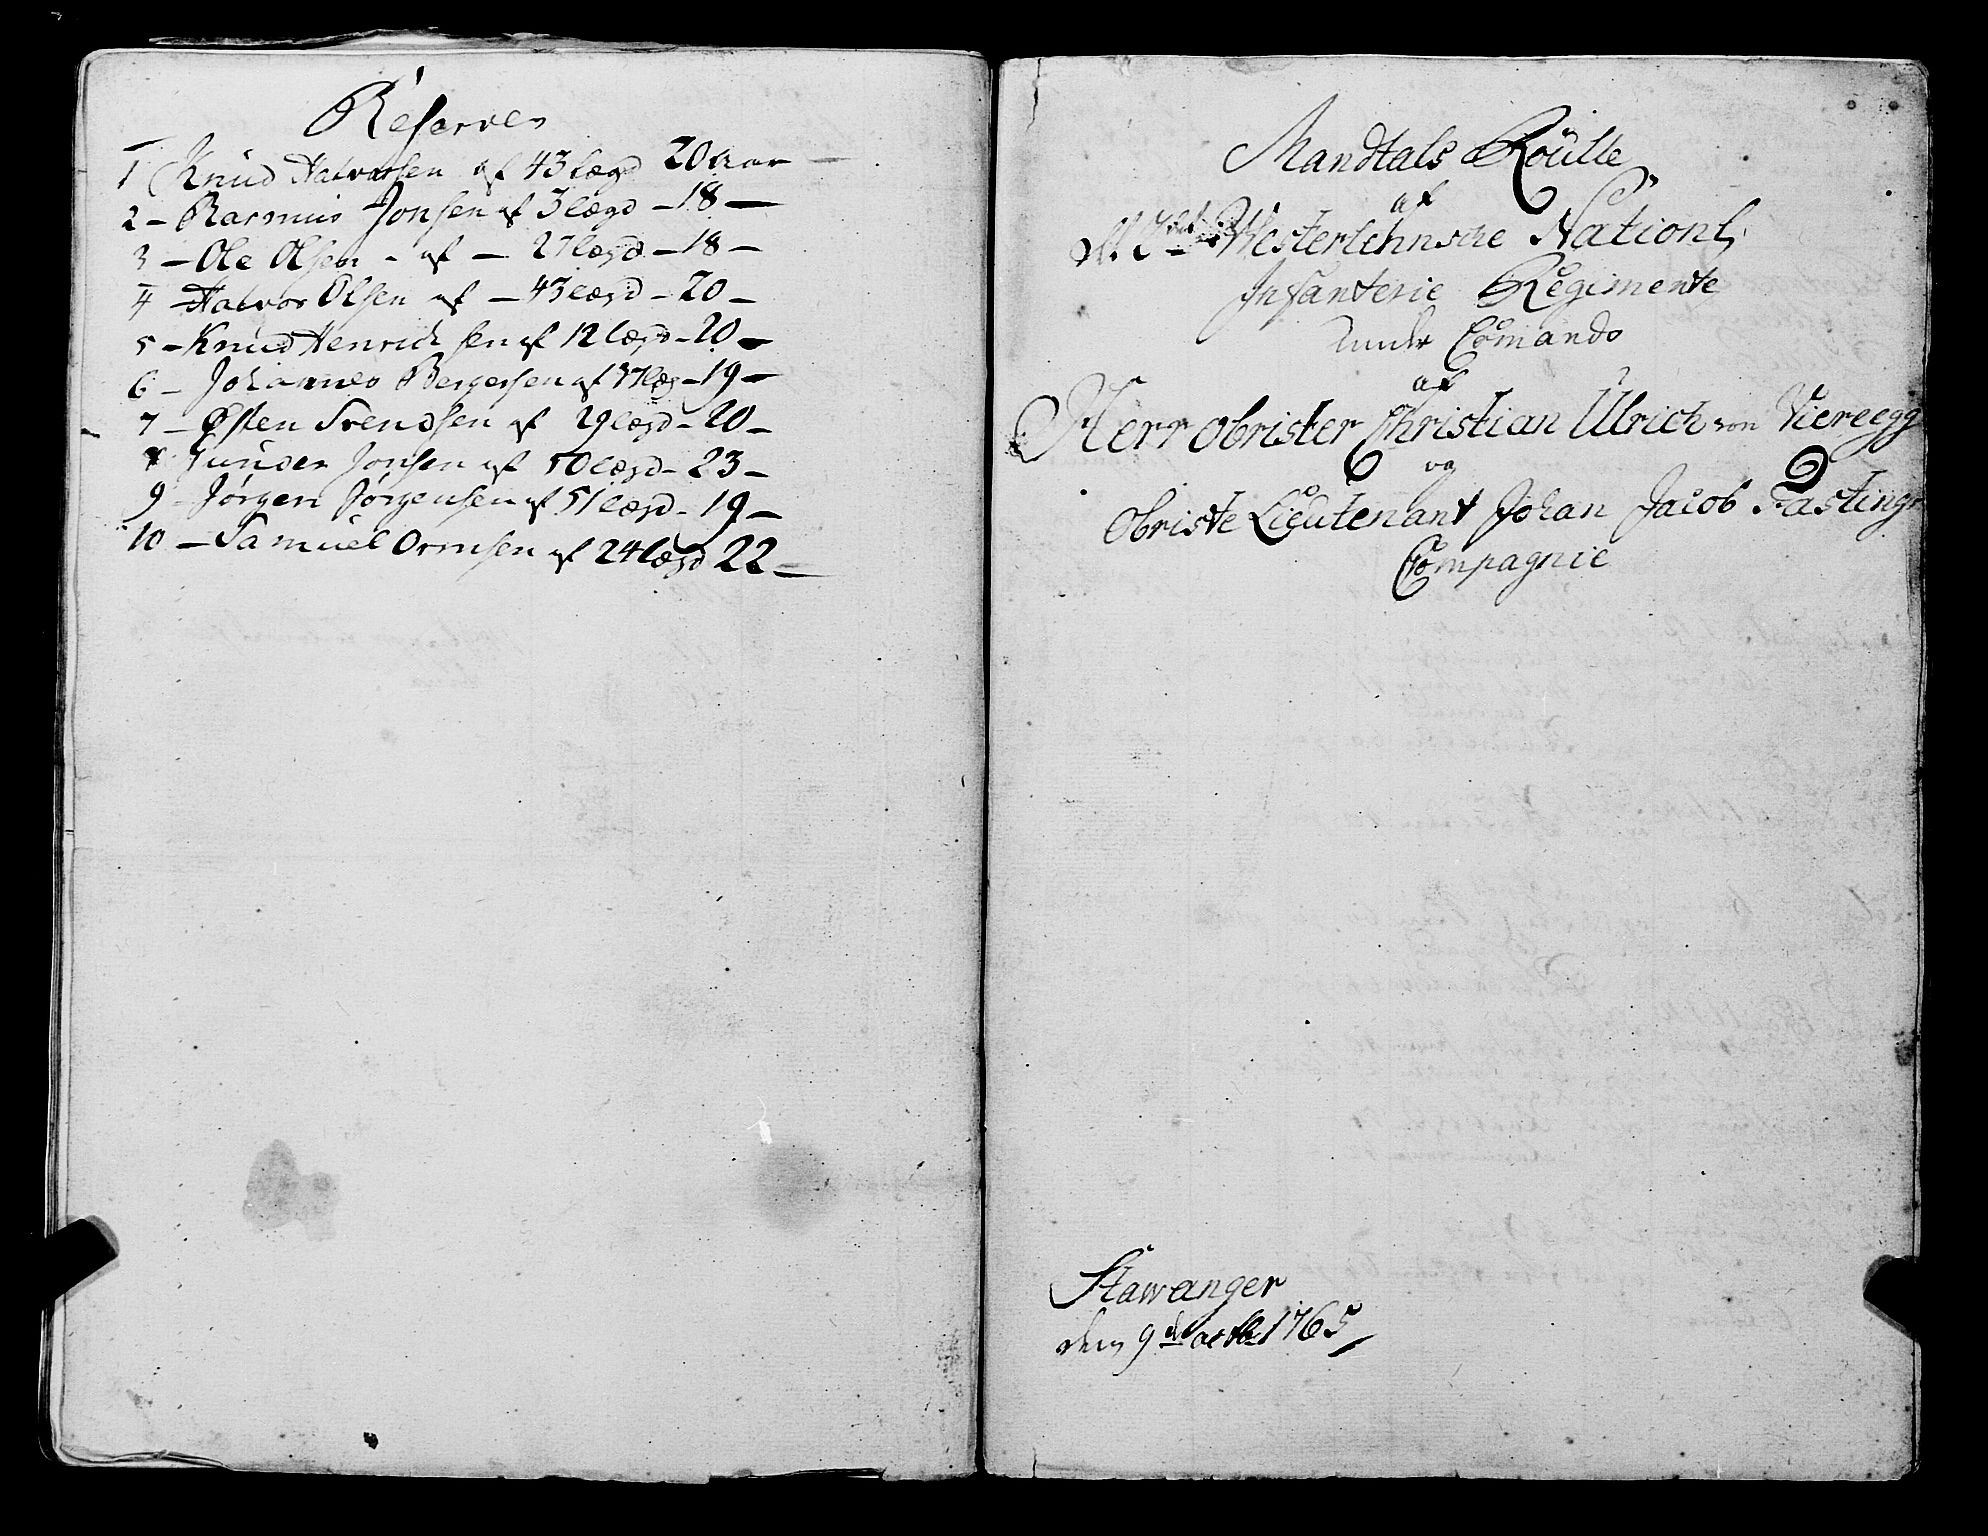 Reserver
1 Knud Halvorsen af 43 lægd 20 aar —
2 – Rasmus Jonsen af 3 lægd – 18 —
3 – Ole Olsen – af – 27 lægd – 18 –
4 – Halvor Olsen af – 43 lægd – 20 –
5 – Knud Henrichsen af 12 lægd – 20 –
6 – Johannes Bergersen af 37 læg – 19 –
7 – Østen Svendsen af 29 lægd – 20 –
8 Gunder Jonsen af 50 lægd – 23 –
9 – Jørgen Jørgensen af 51 lægd – 19 –
10 – Samuel Ormsen af 24 lægd 22 –
Mandtals Roülle
af
Westerlehnske Nationl:
Infanterie Regimente
under Comando
af
Herr Obrister Christian Ulrich von Vieregg
og
Obriste Lieutenant Johan Jacob Fastings
Compagnie
Stawanger
den 9de octbr 1765